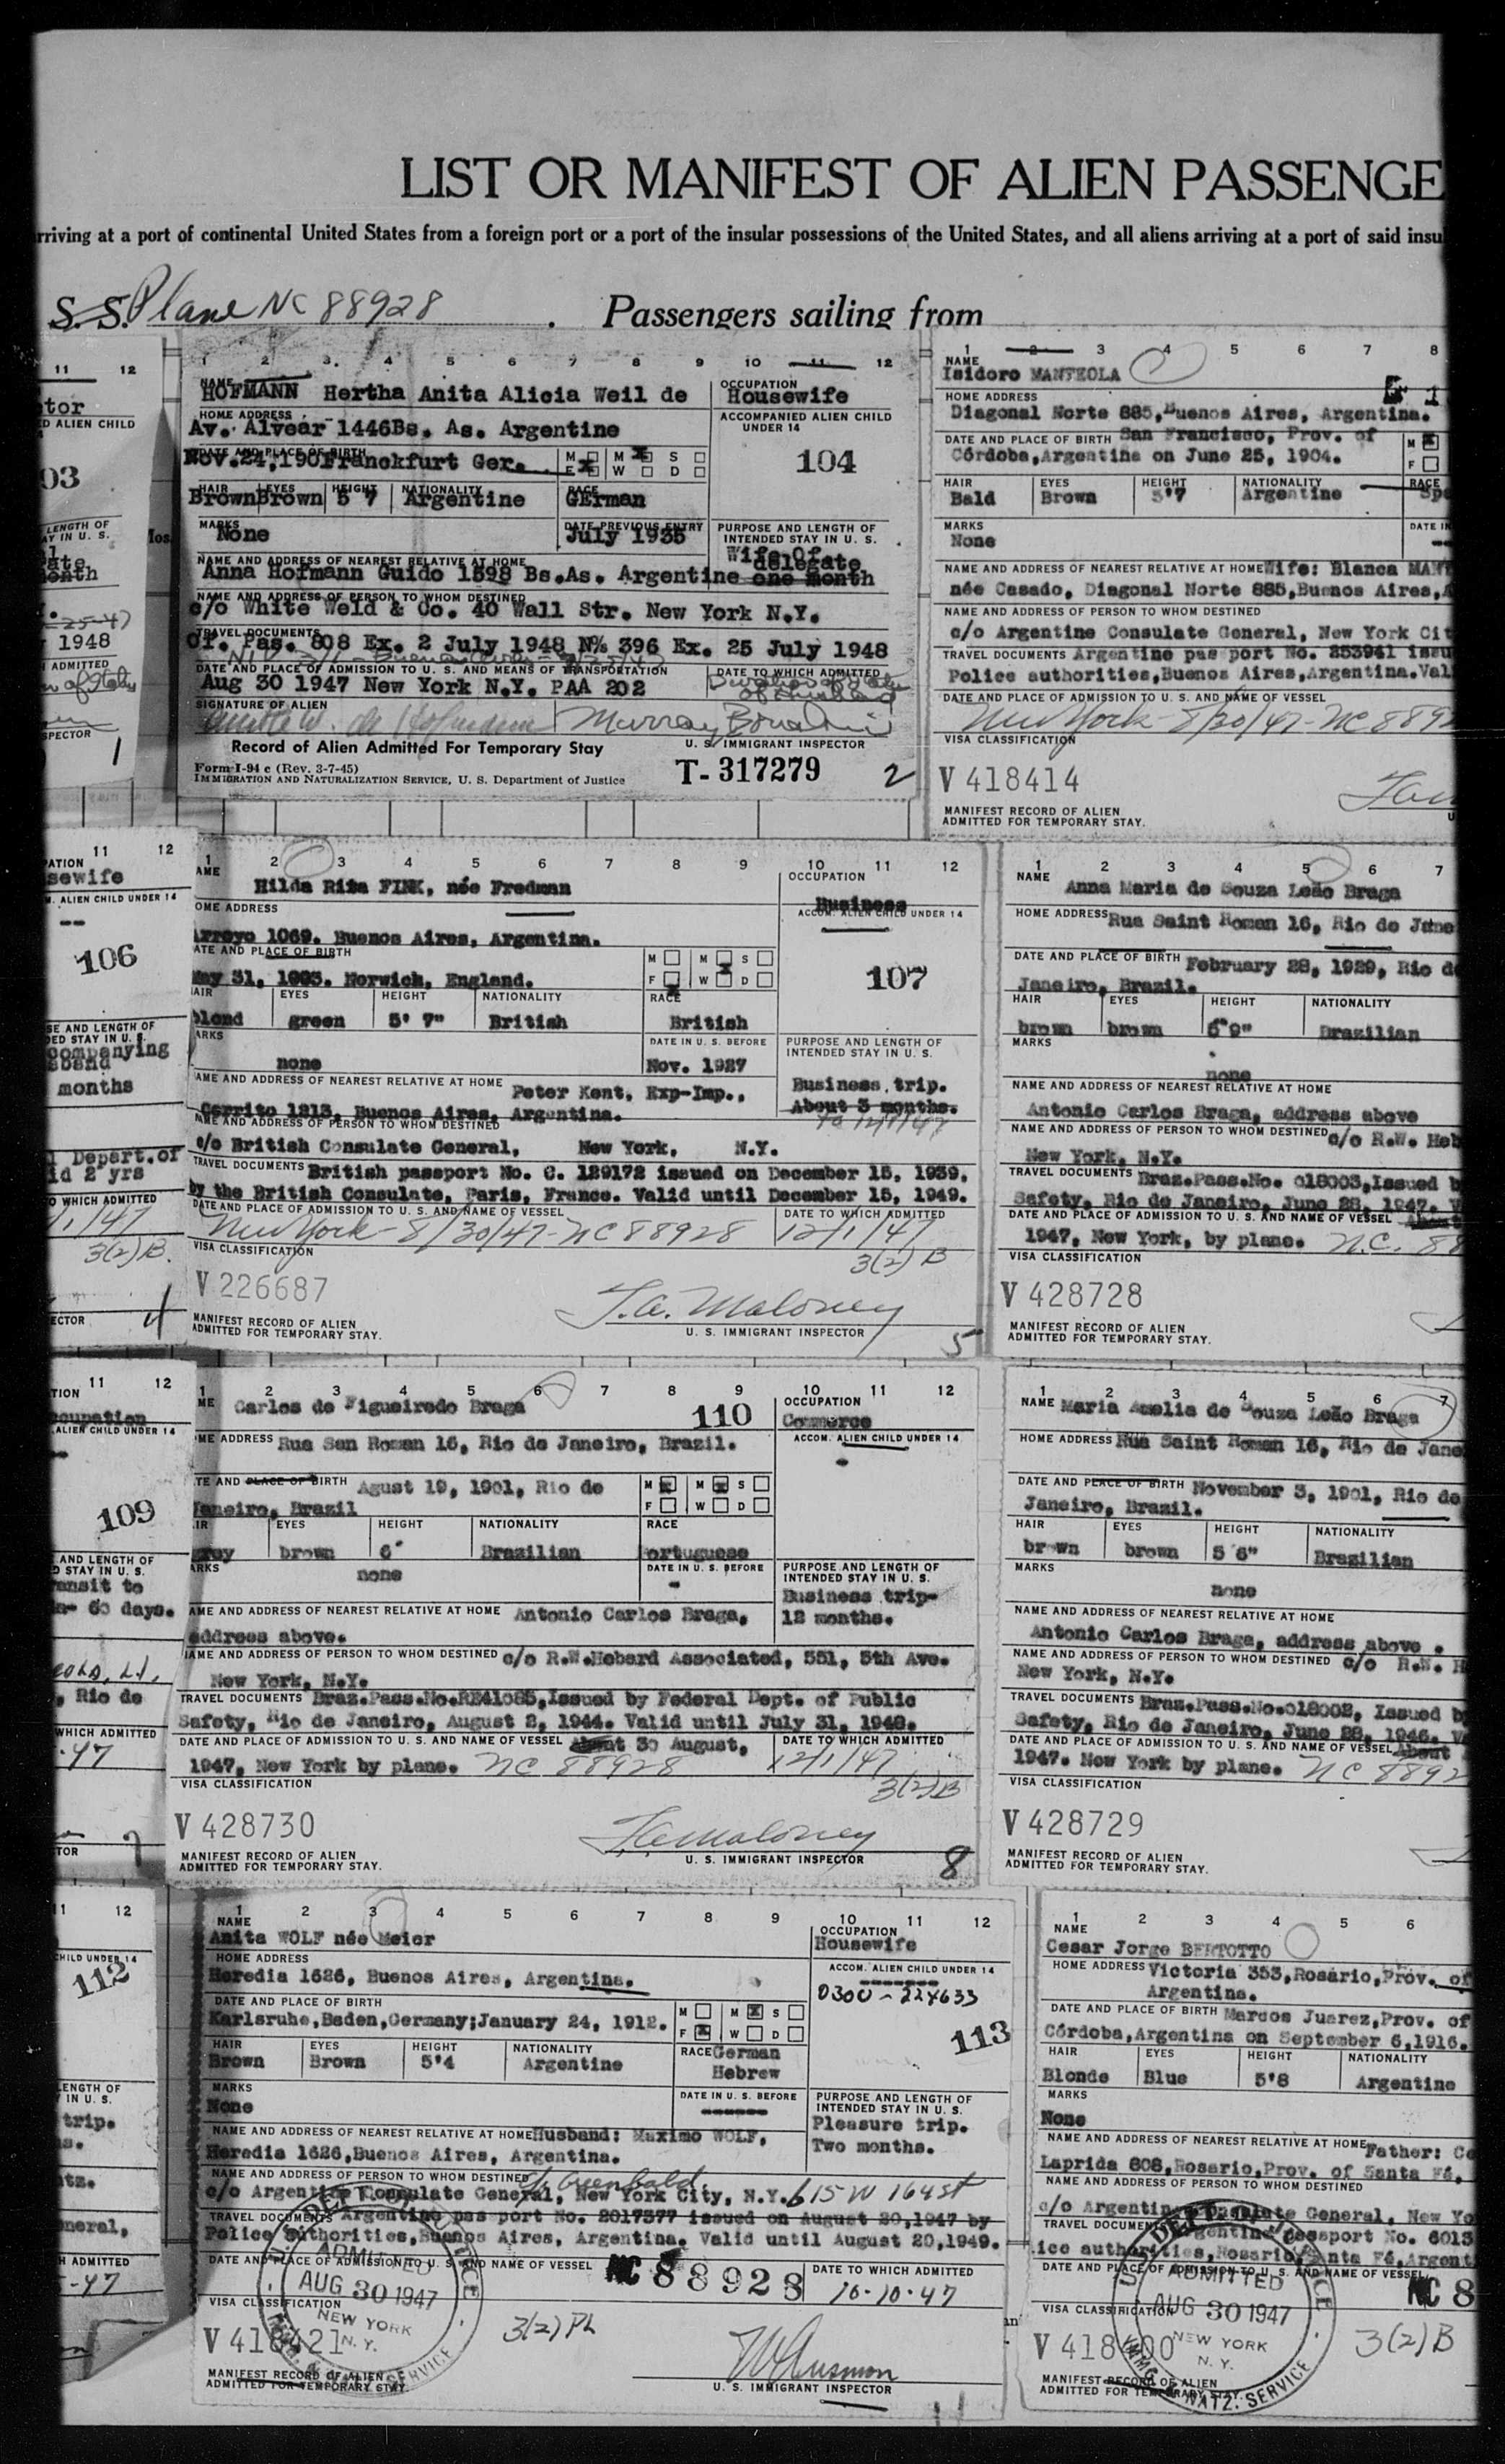 LIST OR MANIFEST OF ALIEN PASSENGE
rriving at a port of continental United States from a foreign port or a port of the insular possessions of the United States, and all aliens arriving at a port of said insu
S.S. Plane NC 88928 . Passengers sailing from
11 12
tor
ED ALIEN CHILD
03
LENGTH OF
AY IN U. S.
ate
onth
1948
ADMITTED
SPECTOR
1
1 2 3. 4 5 6 7 8 9 10 11 12
NAME
HOFMANN Hertha Anita Alicia Weil de
OCCUPATION
Housewife
HOME ADDRESS
Av. Alvear 1446Bs. As. Argentine
ACCOMPANIED ALIEN CHILD
UNDER 14
104
DATE AND PLACE OF BIRTH
Nov.24,190 Franckfurt Ger.
M M S
F W D
HAIR EYES HEIGHT NATIONALITY RACE
Brown Brown 5 7 Argentine GErman
MARKS
None
DATE PREVIOUS ENTRY
July 1935
PURPOSE AND LENGTH OF
INTENDED STAY IN U. S.
Wife Of
delegate
one month
NAME AND ADDRESS OF NEAREST RELATIVE AT HOME
Anna Hofmann Guido 1598 Bs.As. Argentine
NAME AND ADDRESS OF PERSON TO WHOM DESTINED
c/o White Weld & Co. 40 Wall Str. New York N.Y.
TRAVEL DOCUMENTS
Of. Pas. 808 Ex. 2 July 1948 N% 396 Ex. 25 July 1948
DATE AND PLACE OF ADMISSION TO U. S. AND MEANS OF TRANSPORTATION
Aug 30 1947 New York N.Y. PAA 202
DATE TO WHICH ADMITTED
SIGNATURE OF ALIEN
Record of Alien Admitted For Temporary Stay
U. S. IMMIGRANT INSPECTOR
Form I-94 c (Rev. 3-7-45)
IMMIGRATION AND NATURALIZATION SERVICE, U. S. Department of Justice
T- 317279
2
1 2 3 4 5 6 7 8
NAME
Isidoro MANTEOLA
HOME ADDRESS
Diagonal Norte 885,Buenos Aires, Argentina.
DATE AND PLACE OF BIRTH San Francisco, Prov. of
Córdoba,Argentina on June 25, 1904.
M
F
HAIR EYES HEIGHT NATIONALITY RACE
Bald Brown 5'7 Argentine Spa
MARKS DATE IN
None
NAME AND ADDRESS OF NEAREST RELATIVE AT HOME Wife: Blanca MANT
née Casado, Diagonal Norte 885,Buenos Aires,A
NAME AND ADDRESS OF PERSON TO WHOM DESTINED
c/o Argentine Consulate General, New York Cit
TRAVEL DOCUMENTS Argentine pas port No. 253941 issu
Police authorities,Buenos Aires,Argentina.Val
DATE AND PLACE OF ADMISSION TO U. S. AND NAME OF VESSEL
New York - 8/30/47 - NC 8892
VISA CLASSIFICATION
V 418414
MANIFEST RECORD OF ALIEN
ADMITTED FOR TEMPORARY STAY.
11 12
PATION
sewife
M. ALIEN CHILD UNDER 14
--
106
SE AND LENGTH OF
DED STAY IN U. S.
companying
sband
months
Depart.of
id 2 yrs
O WHICH ADMITTED
/1/47
3(2)B.
ECTOR
4
1 2 3 4 5 6 7 8 9 10 11 12
AME
Hilda Rita FINK, née Fredman
OCCUPATION
Business
OME ADDRESS
ACCOM. ALIEN CHILD UNDER 14
Arroyo 1069. Buenos Aires, Argentina.
ATE AND PLACE OF BIRTH
May 31, 1903. Norwich, England.
M M S
F W D
107
HAIR EYES HEIGHT NATIONALITY RACE
blond green 5' 7" British British
ARKS
none
DATE IN U. S. BEFORE
Nov. 1927
PURPOSE AND LENGTH OF
INTENDED STAY IN U. S.
Business trip.
About 3 months.
to 12/1/47
AME AND ADDRESS OF NEAREST RELATIVE AT HOME Peter Kent, Exp-Imp.,
Cerrito 1213, Buenos Aires, Argentina.
NAME AND ADDRESS OF PERSON TO WHOM DESTINED
c/o British Consulate General, New York, N.Y.
TRAVEL DOCUMENTS British passport No. C. 129172 issued on December 15, 1939,
by the British Consulate, Paris, France. Valid until December 15, 1949.
DATE AND PLACE OF ADMISSION TO U. S. AND NAME OF VESSEL DATE TO WHICH ADMITTED
New York - 8/30/47 - NC 88928 12/1/47
VISA CLASSIFICATION 3(2) B
V 226687
T.A. Maloney
MANIFEST RECORD OF ALIEN
ADMITTED FOR TEMPORARY STAY.
U. S. IMMIGRANT INSPECTOR
5
1 2 3 4 5 6 7
NAME Anna Maria de Souza Leão Braga
HOME ADDRESS Rua Saint Roman 16, Rio de Jane
DATE AND PLACE OF BIRTH February 28, 1929, Rio d
Janeiro, Brazil.
HAIR EYES HEIGHT NATIONALITY
brown brown Brazilian
MARKS
none
NAME AND ADDRESS OF NEAREST RELATIVE AT HOME
Antonio Carlos Braga, address above
NAME AND ADDRESS OF PERSON TO WHOM DESTINED c/o R.W. Heb
New York, N.Y.
TRAVEL DOCUMENTS Braz.Pass.No. 018003,Issued b
Safety, Rio de Janeiro, June 28, 1947. V
DATE AND PLACE OF ADMISSION TO U. S. AND NAME OF VESSEL About
1947, New York, by plane. N.C. 88
VISA CLASSIFICATION
V 428728
MANIFEST RECORD OF ALIEN
ADMITTED FOR TEMPORARY STAY.
11 12
TION
ccupation
ALIEN CHILD UNDER 14
109
AND LENGTH OF
D STAY IN U. S.
ransit to
60 days.
, Rio de
WHICH ADMITTED
-47
TOR
7
1 2 3 4 5 6 7 8 9 10 11 12
ME Carlos de Figueiredo Braga
110
OCCUPATION
Commerce
ME ADDRESS Rua San Roman 16, Rio de Janeiro, Brazil.
ACCOM. ALIEN CHILD UNDER 14
-
TE AND PLACE OF BIRTH Agust 19, 1901, Rio de
Janeiro, Brazil
M M S
F W D
IR EYES HEIGHT NATIONALITY RACE
grey brown 6' Brazilian Portuguese
ARKS none
DATE IN U. S. BEFORE
-
PURPOSE AND LENGTH OF
INTENDED STAY IN U. S.
Business trip-
12 months.
AME AND ADDRESS OF NEAREST RELATIVE AT HOME Antonio Carlos Braga,
address above.
NAME AND ADDRESS OF PERSON TO WHOM DESTINED c/o R.W.Hebard Associated, 551, 5th Ave.
New York, N.Y.
TRAVEL DOCUMENTS Braz.Pass.No.RE41085,Issued by Federal Dept. of Public
Safety, Rio de Janeiro, August 2, 1944. Valid until July 31, 1948.
DATE AND PLACE OF ADMISSION TO U. S. AND NAME OF VESSEL About 30 August, DATE TO WHICH ADMITTED
1947, New York by plane. NC 88928 12/1/47
VISA CLASSIFICATION 3(2)B
V 428730
T.A. Maloney
MANIFEST RECORD OF ALIEN
ADMITTED FOR TEMPORARY STAY.
U. S. IMMIGRANT INSPECTOR
8
1 2 3 4 5 6 7
NAME Maria Amelia de Souza Leão Braga
HOME ADDRESS Rua Saint Roman 16, Rio de Jane
DATE AND PLACE OF BIRTH November 3, 1901, Rio de
Janeiro, Brazil.
HAIR EYES HEIGHT NATIONALITY
brown brown 5 6" Brazilian
MARKS
none
NAME AND ADDRESS OF NEAREST RELATIVE AT HOME
Antonio Carlos Braga, address above .
NAME AND ADDRESS OF PERSON TO WHOM DESTINED c/o R.W. H
New York, N.Y.
TRAVEL DOCUMENTS Braz.Pass.No.018002, Issued b
Safety, Rio de Janeiro, June 28, 1946. V
DATE AND PLACE OF ADMISSION TO U. S. AND NAME OF VESSEL About
1947. New York by plane. NC 8892
VISA CLASSIFICATION
V 428729
MANIFEST RECORD OF ALIEN
ADMITTED FOR TEMPORARY STAY.
11 12
CHILD UNDER 14
112
LENGTH OF
IN U. S.
trip.
s.
tz.
neral,
H ADMITTED
-47
1 2 3 4 5 6 7 8 9 10 11 12
NAME
Anita WOLF née Meier
OCCUPATION
Housewife
HOME ADDRESS
Heredia 1626, Buenos Aires, Argentina.
ACCOM. ALIEN CHILD UNDER 14
0300 - 224633
DATE AND PLACE OF BIRTH
Karlsruhe,Baden,Germany;January 24, 1912.
M M S
F W D
113
HAIR EYES HEIGHT NATIONALITY RACE German
Brown Brown 5'4 Argentine Hebrew
MARKS
None
DATE IN U. S. BEFORE
PURPOSE AND LENGTH OF
INTENDED STAY IN U. S.
Pleasure trip.
Two months.
NAME AND ADDRESS OF NEAREST RELATIVE AT HOME Husband: Maximo WOLF,
Heredia 1626,Buenos Aires, Argentina.
NAME AND ADDRESS OF PERSON TO WHOM DESTINED
c/o Argentine Consulate General, New York City, N.Y. 615 W 164 st
TRAVEL DOCUMENTS Argentine pas port No. 2017377 issued on August 20,1947 by
Police authorities,Buenos Aires, Argentina. Valid until August 20,1949.
DATE AND PLACE OF ADMISSION TO U. S. AND NAME OF VESSEL NC 88928
DATE TO WHICH ADMITTED
10-10-47
ADMITTED
AUG 30 1947
NEW YORK
N. Y.
VISA CLASSIFICATION
V 418421
3(2) PL
MANIFEST RECORD OF ALIEN
ADMITTED FOR TEMPORARY STAY.
U. S. IMMIGRANT INSPECTOR
11
1 2 3 4 5 6
NAME
Cesar Jorge BERTOTTO
HOME ADDRESS Victoria 353,Rosario,Prov. of
Argentina.
DATE AND PLACE OF BIRTH Marcos Juarez,Prov. of
Córdoba,Argentina on September 6,1916.
HAIR EYES HEIGHT NATIONALITY
Blonde Blue 5'8 Argentine
MARKS
None
NAME AND ADDRESS OF NEAREST RELATIVE AT HOME Father: Ce
Laprida 808,Rosario,Prov. of Santa Fé,
NAME AND ADDRESS OF PERSON TO WHOM DESTINED
c/o Argentine Consulate General, New Yo
TRAVEL DOCUMENTS Argentine passport No. 6013
ice authorities,Rosario,Santa Fé,Argent
DATE AND PLACE OF ADMISSION TO U. S. AND NAME OF VESSEL
NC 8
ADMITTED
AUG 30 1947
NEW YORK
N. Y.
IMMIG. & NATZ. SERVICE
VISA CLASSIFICATION
3(2) B
MANIFEST RECORD OF ALIEN
ADMITTED FOR TEMPORARY STAY.